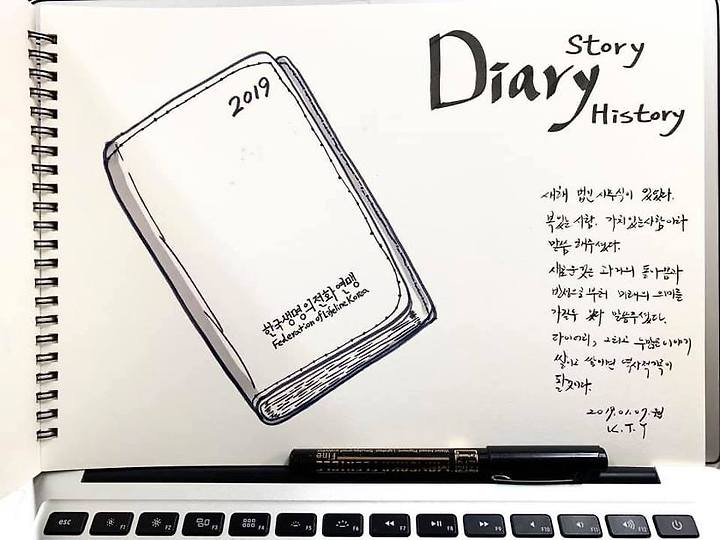 Story
Diary
History
2019
한국생명의전화연맹
Federation of Lifeline Korea
새해 법인 시무식이 있었다.
복있는 사람. 가치있는 사람이라
말씀 해주셨다.
새로운 것은 과거의 돌아봄과
반성으로부터 미래의 의미를
가져온다 말씀주셨다.
다이어리, 그리고 수많은 이야기
쌓이고 쌓이면 역사적기록이
될것이다.
2019.01.07.
K.T.Y
Fine
esc
F1
F2
F3
F4
F5
F6
F7
F8
F9
F10
F11
F12